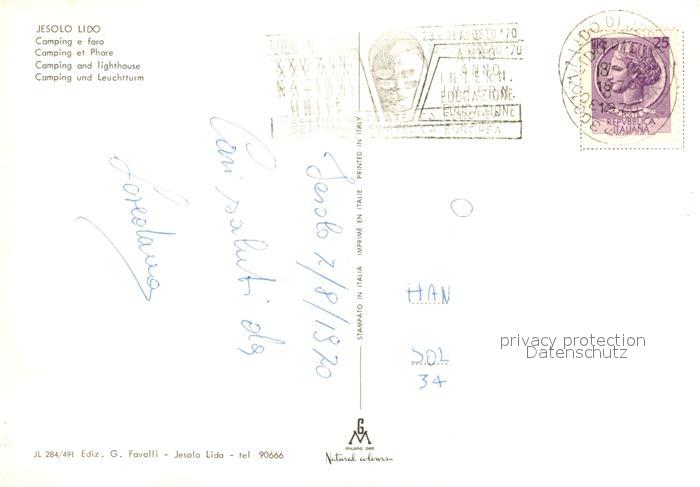 JESOLO LIDO
Camping e faro
Camping et Phare
Camping and lighthouse
Camping und Leuchtturm
23-31 AGOSTO '70
XXV ANN.
NAZIONI
UNITE
ANNO
INTERN.
EDUCAZIONE
EDUCAZIONE
LIDO DI JESOLO
18-
LIRE 25
REPVBBLICA
ITALIANA
Jesolo 7/8/1970
Cari saluti da
Loredana
STAMPATO IN ITALIA IMPRIMÉ EN ITALIE PRINTED IN ITALY
HAN
SOL
34
privacy protection
Datenschutz
GM
MILANO DEP.
Natural colours
JL 284/491 Ediz. G. Favalli - Jesolo Lido - tel 90666